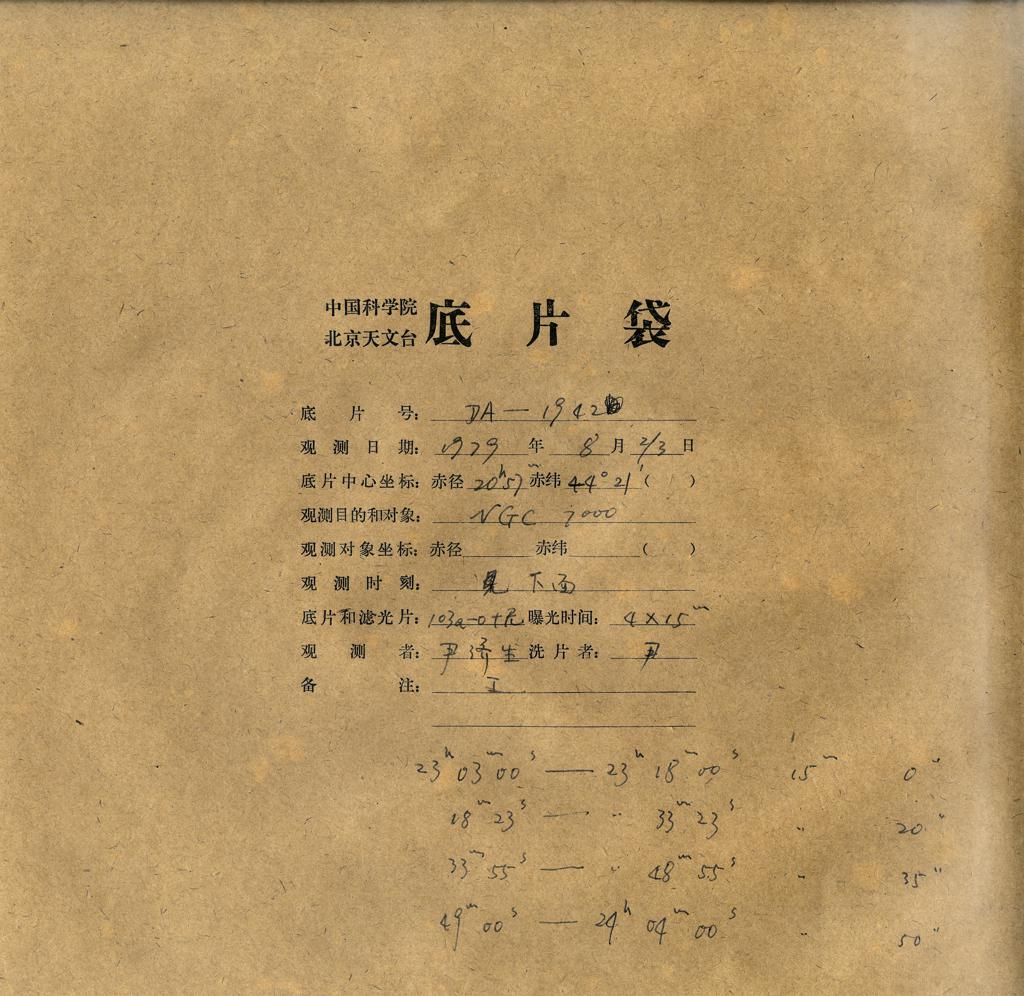 中国科学院
北京天文台 底片袋
底片号： DA—1942
观测日期： 1979 年 8 月 2/3 日
底片中心坐标： 赤径 20ʰ57ᵐ 赤纬 44°21′ （ ）
观测目的和对象： NGC 7000
观测对象坐标： 赤径 赤纬 （ ）
观测时刻： 见下面
底片和滤光片： 103a-O+尼 曝光时间： 4×15ᵐ
观测者： 尹济生 洗片者： 尹
备注： I
23ʰ03ᵐ00ˢ — 23ʰ18ᵐ00ˢ 15ᵐ 0"
18ᵐ23ˢ — " 33ᵐ23ˢ " 20"
33ᵐ55ˢ — " 48ᵐ55ˢ " 35"
49ᵐ00ˢ — 24ʰ04ᵐ00ˢ " 50"